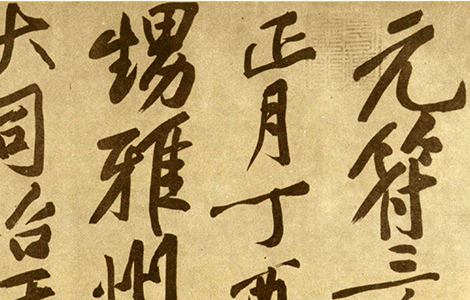 元符三
正月丁酉
甥雅州
大同